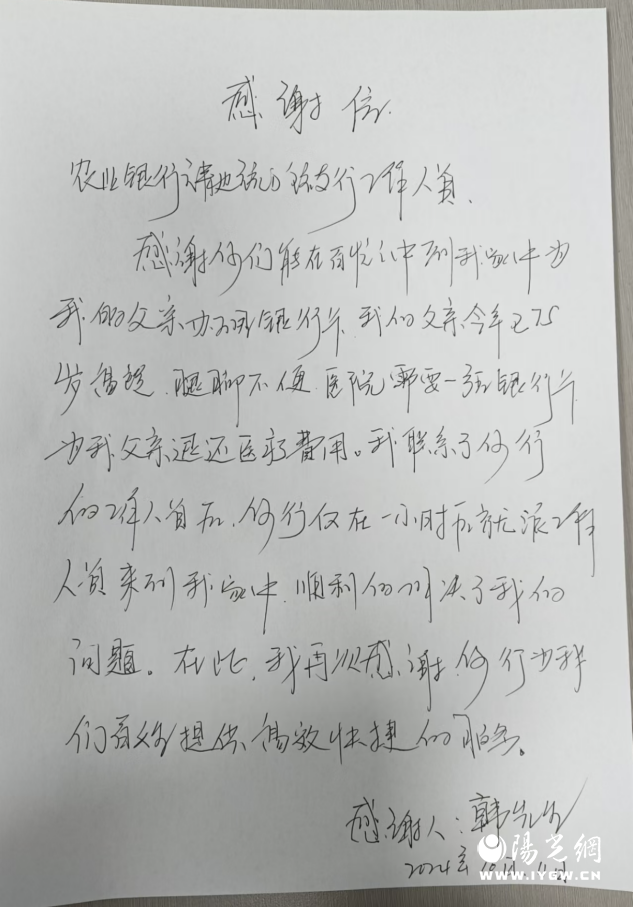 感谢信
农业银行靖边统万路支行工作人员、
感谢你们能在百忙之中到我家中为
我的父亲办理银行卡。我的父亲今年已75
岁高龄,腿脚不便,医院需要一张银行卡
为我父亲退还医疗费用。我联系了你行
的工作人员后,你行仅在一小时后就派工作
人员来到我家中,顺利的解决了我的
问题。在此,我再次感谢,你行为我
们百姓提供高效快捷的服务。
感谢人:韩先生
2024年10月
陽光網
WWW.IYGW.CN